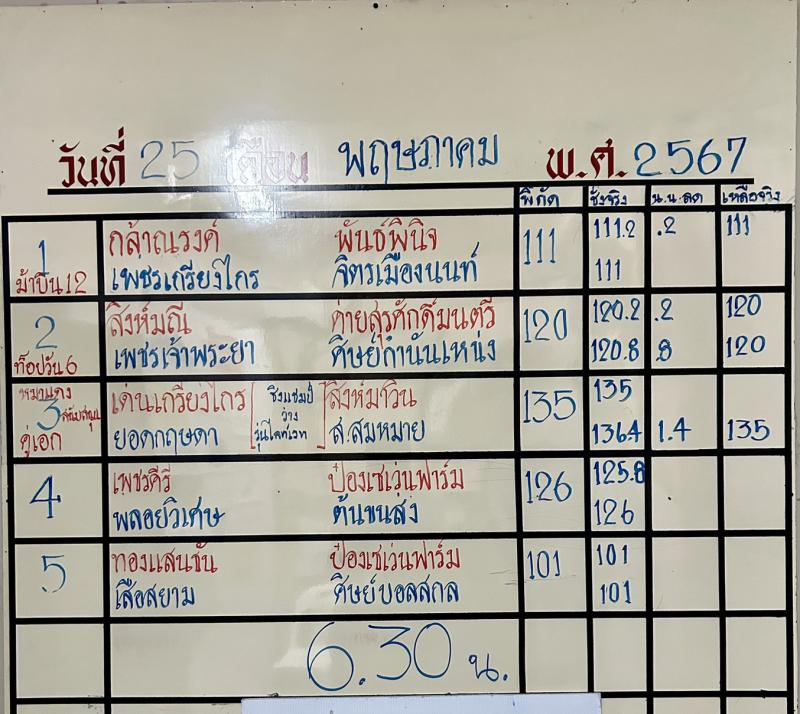 วันที่ 25 เดือน พฤษภาคม พ.ศ. 2567
พิกัด ชั่งจริง น.น.ลด เหลือจริง
1 กล้าณรงค์ พันธ์พินิจ 111 111.2 .2 111
ม้าบิน 12 เพชรเกรียงไกร จิตรเมืองนนท์ 111
2 สิงห์มณี ค่ายสุรศักดิ์มนตรี 120 120.2 .2 120
ท๊อปวัน 6 เพชรเจ้าพระยา ศิษย์กำนันเหน่ง 120.8 .8 120
หมาแดง สนับสนุน
3 เด่นเกรียงไกร ชิงแชมป์ สิงห์มาวิน 135 135
ว่าง
คู่เอก ยอดกฤษดา รุ่นไลท์เวท ส.สมหมาย 136.4 1.4 135
4 เพชรคีรี ป๋องเซเว่นฟาร์ม 126 125.8
พลอยวิเศษ ต้นขนส่ง 126
5 ทองแสนชัน ป๋องเซเว่นฟาร์ม 101 101
เสือสยาม ศิษย์บอลสกล 101
6.30 น.